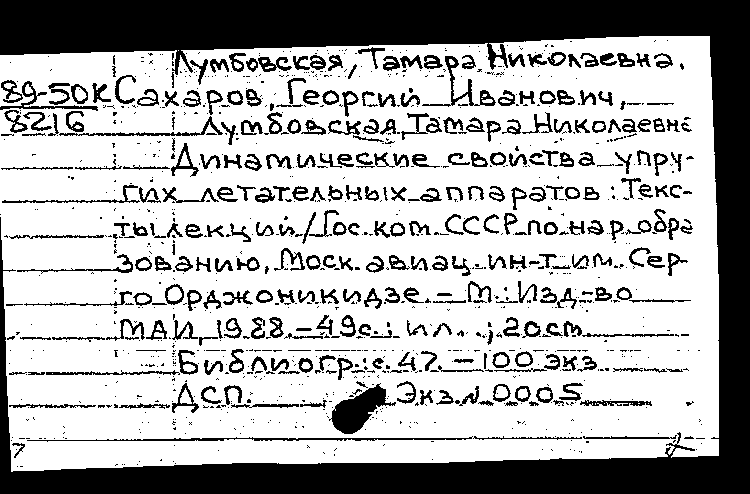 Лумбовская, Тамара Николаевна.
89-50К Сахаров, Георгий Иванович,
8216 Лумбовская, Тамара Николаевна
Динамические свойства упру-
гих летательных аппаратов: Текс-
ты лекций/Гос. ком. СССР по нар. обра
зованию, Моск. авиац. ин-т им. Сер-
го Орджоникидзе. – М.: Изд-во
МАИ, 1988. – 49с.: ил. ; 20см.
Библиогр.: с. 47. – 100 экз.
ДСП. Экз. № 0005